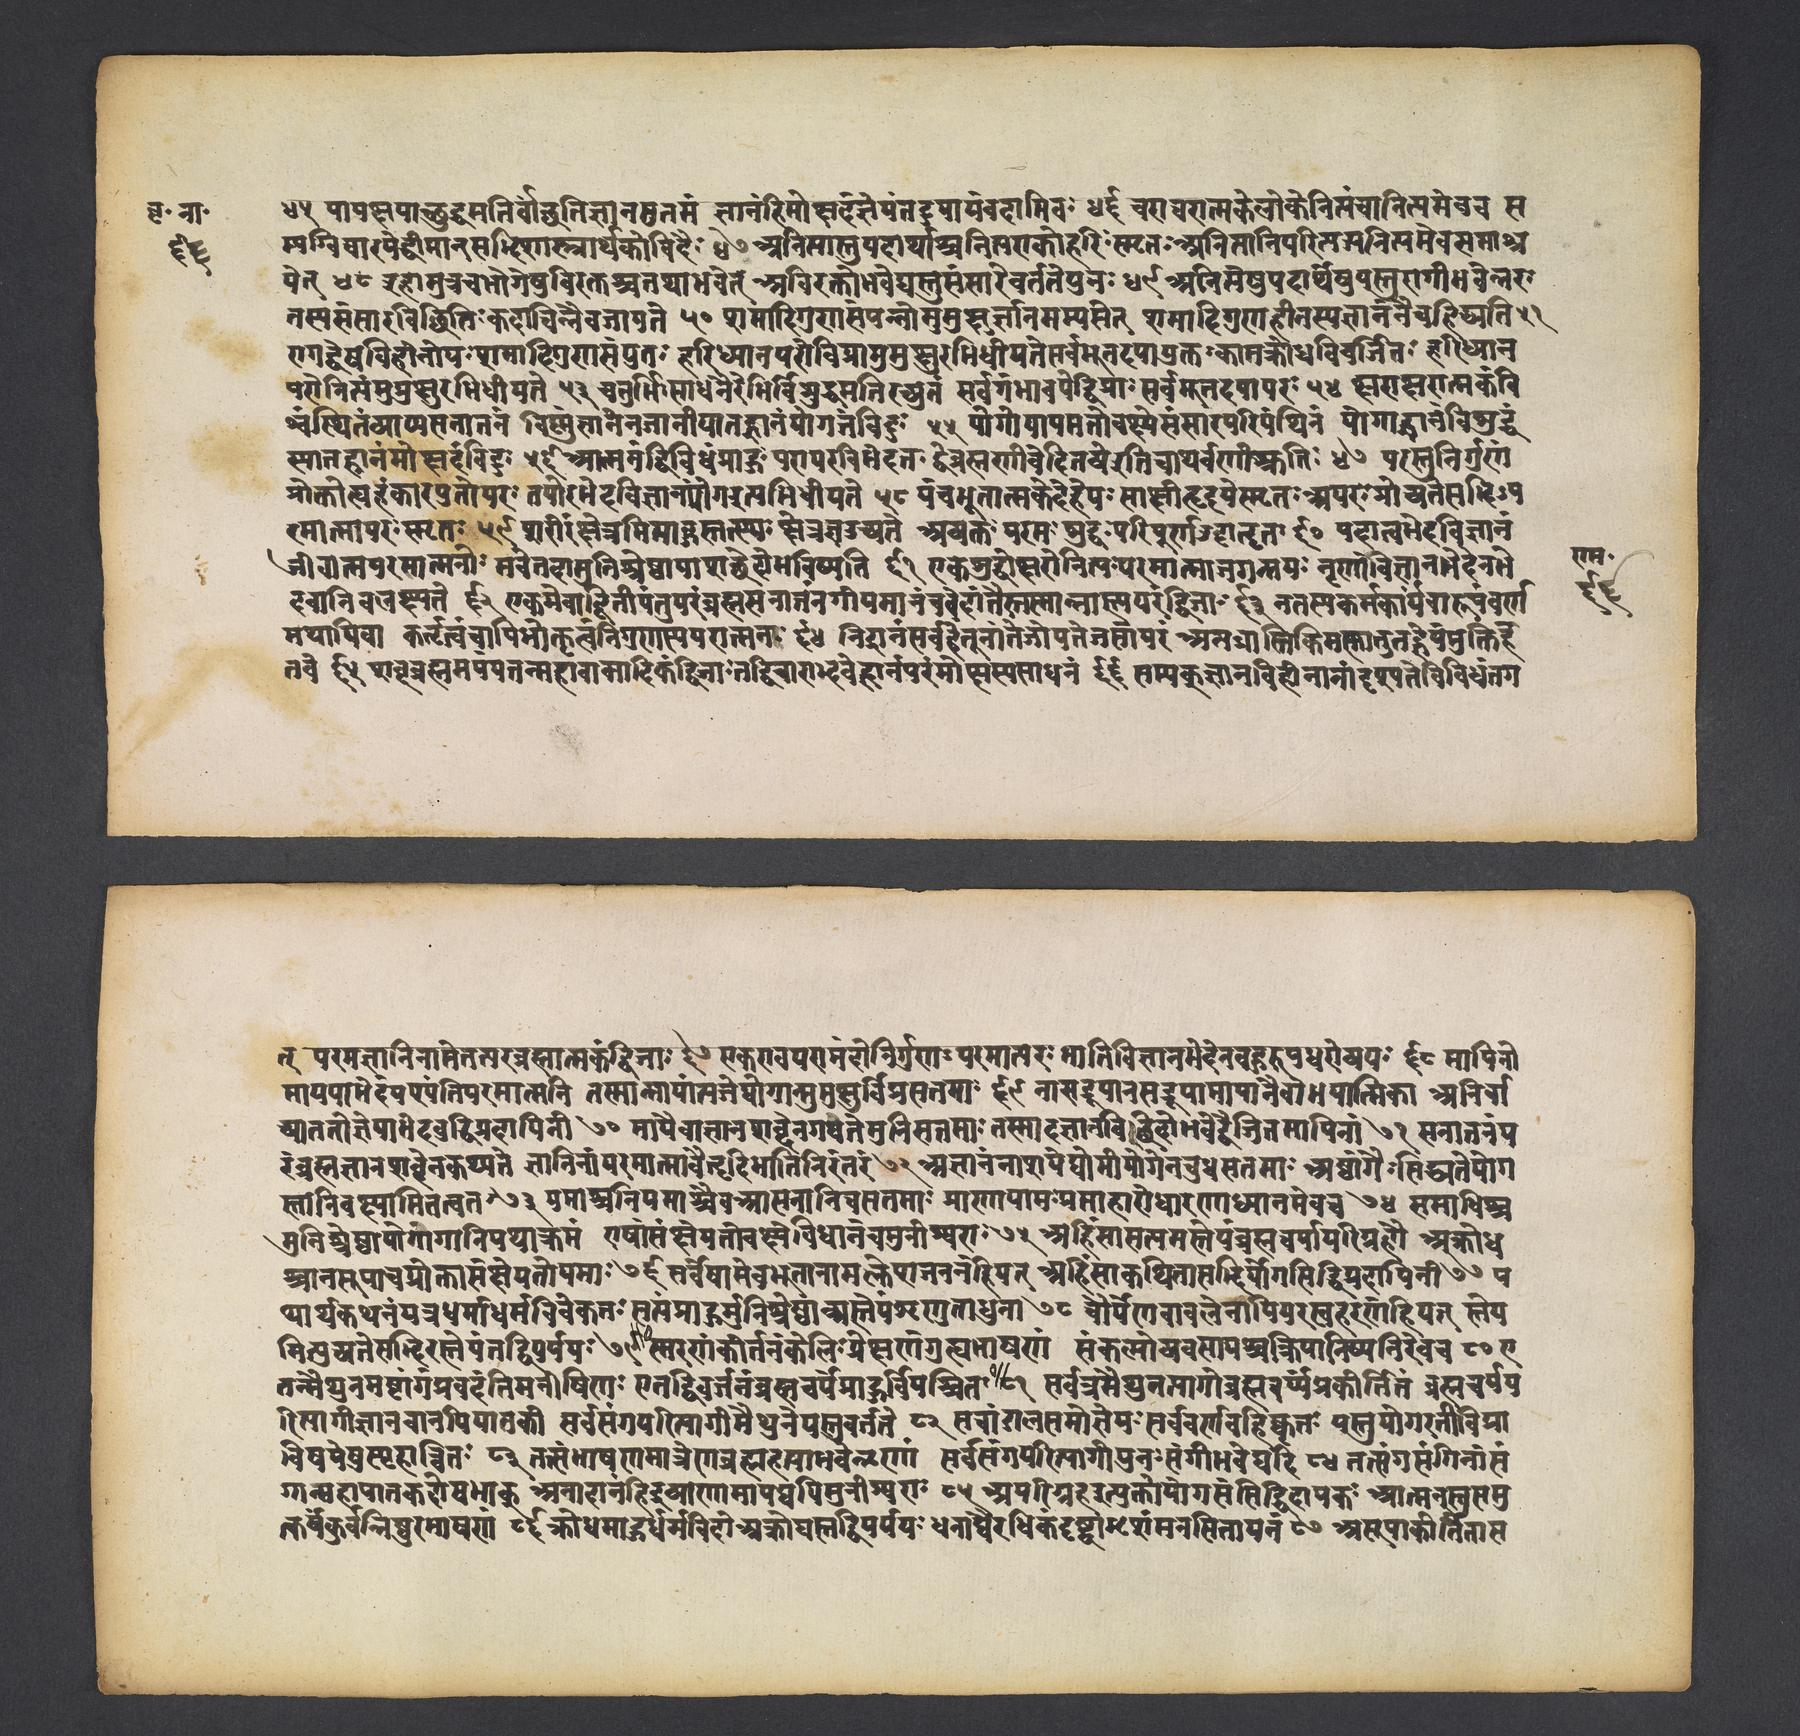 बृ॰ ना॰
६६
४५ पापक्षयाच्छुद्धमतिर्वांछतिज्ञानमुत्तमं ज्ञानंहिमोक्षदंज्ञेयंतदुपायंवदामिवः ४६ चराचरात्मकेलोकेनित्यंचानित्यमेवच स
म्यग्विचारयेद्धीमान्सद्भिःशास्त्रार्थकोविदैः ४७ अनित्यास्तुपदार्थाश्चनित्यएकोहरिःस्मृतः अनित्यानिपरित्यज्यनित्यमेवसमाश्र
येत् ४८ इहामुत्रचभोगेषुविरक्तश्चतथाभवेत् अविरक्तोभवेद्यस्तुसंसारेवर्ततेपुनः ४९ अनित्येषुपदार्थेषुयस्तुरागीभवेन्नरः
तस्यसंसारविच्छित्तिःकदाचिन्नैवजायते ५० शमादिगुणसंपन्नोमुमुक्षुर्ज्ञानमभ्यसेत् शमादिगुणहीनस्यज्ञानंनैवचसिद्ध्यति ५१
रागद्वेषविहीनोयःशमादिगुणसंयुतः हरिध्यानपरोविप्रामुमुक्षुरभिधीयते सर्वभूतदयायुक्तःकामक्रोधविवर्जितः हरिध्यान
परोनित्यंमुमुक्षुरभिधीयते ५३ चतुर्भिःसाधनैरेभिर्विशुद्धमतिरच्युतं सर्वगंभावयेद्विप्राः सर्वभूतदयापरः ५४ क्षराक्षरात्मकंवि
श्वंस्थितंव्याप्यसनातनं विष्णुंज्ञानेनजानीयात्तज्ज्ञानंयोगजंविदुः ५५ योगोपायमतोवक्ष्येसंसारपरिपंथिनं योगाज्ज्ञानंविशुद्धं
स्यात्तज्ज्ञानंमोक्षदंविदुः ५६ आत्मानंद्विविधंप्राहुः परापरविभेदतः द्वेब्रह्मणीवेदितव्येइतिचाथर्वणीश्रुतिः ५७ परस्तुनिर्गुणः
प्रोक्तोह्यहंकारयुतोपरः तयोरभेदविज्ञानंयोगइत्यभिधीयते ५८ पंचभूतात्मकेदेहेयः साक्षीहृदयेस्मृतः अपरः प्रोच्यतेसद्भिःप
रमात्मापरः स्मृतः ५९ शरीरंक्षेत्रमित्याहुस्तत्स्थः क्षेत्रज्ञउच्यते अव्यक्तः परमः शुद्धः परिपूर्णउदाहृतः ६० यदात्वभेदविज्ञानं
जीवात्मपरमात्मनोः भवेत्तदामुनिश्रेष्ठापाशच्छेदोभविष्यति ६१ एकःशुद्धोक्षरोनित्यःपरमात्माजगन्मयः नृणांविज्ञानभेदेनभे
राम॰
६६
दवानिवलक्ष्यते ६२ एकमेवाद्वितीयंतुपरंब्रह्मसनातनं गीयमानंचवेदांतैस्तस्मान्नास्त्यपरंद्विजाः ६३ नतस्यकर्मकार्यंवारूपंवर्ण
मथापिवा कर्तृत्वंवापिभोक्तृत्वंनिर्गुणस्यपरात्मनः ६४ निदानंसर्वहेतूनांतेजोयत्तेजसांपरं अन्यन्नास्तिकिमप्यस्मात्तज्ज्ञेयंमुक्तिहे
तवे ६५ शब्दब्रह्ममयंयत्तन्महावाक्यादिकंद्विजाः तद्विचाराद्भवेज्ज्ञानंपरंमोक्षस्यसाधनं ६६ सम्यक्ज्ञानविहीनानांदृश्यतेविविधंजग
त् परमज्ञानिनामेतत्परब्रह्मात्मकंद्विजाः ६७ एकएवपरानंदोनिर्गुणः परमात्परः भातिविज्ञानभेदेनबहुरूपधरोव्ययः ६८ मायिनो
माययाभेदंपश्यंतिपरमात्मनि तस्मान्मायांत्यजेद्योगान्मुमुक्षुर्विप्रसत्तमाः ६९ नासद्रूपानसद्रूपामायानैवोभयात्मिका अनिर्वा
च्याततोज्ञेयाभेदबुद्धिप्रदायिनी ७० मायैवाज्ञानशब्देनगद्यतेमुनिसत्तमाः तस्मादज्ञानविच्छेदोभवेद्वैजितमायिनां ७१ सनातनंप
रंब्रह्मज्ञानशब्देनकथ्यते ज्ञानिनांपरमात्मावैहृदिभातिनिरंतरं ७२ अज्ञानंनाशयेद्योगीयोगेनबुधसत्तमाः अष्टांगैः सिद्ध्यतेयोग
स्तानिवक्ष्यामितत्वतः ७३ यमाश्चनियमाश्चैवआसनानिचसत्तमाः प्राणायामःप्रत्याहारोधारणाध्यानमेवच ७४ समाधिश्च
मुनिश्रेष्ठायोगांगानियथाक्रमं एषांसंक्षेपतोवक्ष्येविधानंचमुनीश्वराः ७५ अहिंसासत्यमस्तेयंब्रह्मचर्यापरिग्रहौ अक्रोध
श्चानसूयाचप्रोक्तासंक्षेपतोयमाः ७६ सर्वेषामेवभूतानामक्लेशजननंहियत् अहिंसाकथितासद्भिर्योगसिद्धिप्रदायिनी ७७ य
थार्थकथनंयच्चधर्माधर्मविवेकतः सत्यंप्राहुर्मुनिश्रेष्ठाअस्तेयंशृणुताधुना ७८ चौर्येणवाबलेनापिपरस्वहरणंहियत् स्तेय
मित्युच्यतेसद्भिरस्तेयंतद्विपर्ययः ७९ स्मरणंकीर्तनंकेलिःप्रेक्षणंगुह्यभाषणं संकल्पोध्यवसायश्चक्रियानिष्पत्तिरेवच ८० ए
तन्मैथुनमष्टांगंप्रवदंतिमनीषिणः एतद्विवर्जनंब्रह्मचर्यमाहुर्विपश्चितः ८१ सर्वत्रमैथुनत्यागोब्रह्मचर्यंप्रकीर्तितं ब्रह्मचर्यप
रित्यागीज्ञानवानपिपातकी सर्वसंगपरित्यागीमैथुनेयस्तुवर्तते ८२ सचांडालसमोज्ञेयः सर्ववर्णबहिष्कृतः यस्तुयोगरतोविप्रा
विषयेषुस्पृहान्वितः ८३ तत्संभाषणमात्रेणब्रह्महत्याभवेन्नृणां सर्वसंगपरित्यागीपुनःसंगीभवेद्यदि ८४ तत्संगसंगिनांसं
गान्महापातकदोषभाक् अनादानंहिद्रव्याणामापद्यपिमुनीश्वराः ८५ अपरिग्रहइत्युक्तोयोगसंसिद्धिदायकः आत्मनस्तुसमु
त्कर्षंकुर्वन्निष्ठुरभाषणं ८६ क्रोधमाहुर्धर्मविदोअक्रोधस्तद्विपर्ययः धनाद्यैरधिकंदृष्ट्वाभृशंमनसितापनं ८७ असूयाकीर्तितास